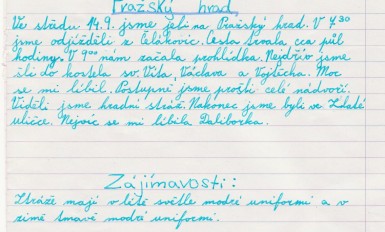 Pražský hrad
Ve středu 14.9. jsme jeli na Pražský hrad. V 7 30
jsme odjížděli z Čelákovic. Cesta trvala cca půl
hodiny. V 9 00 nám začala prohlídka. Nejdřív jsme
šli do kostela sv. Víta, Václava a Vojtěcha. Moc
se mi líbil. Postupně jsme prošli celé nádvoří.
Viděli jsme hradní stráž. Nakonec jsme byli ve Zlaté
uličce. Nejvíc se mi líbila Daliborka.
Zájímavosti:
Stráže mají v létě světle modré uniformi a v
zimě tmavě modré uniformi.